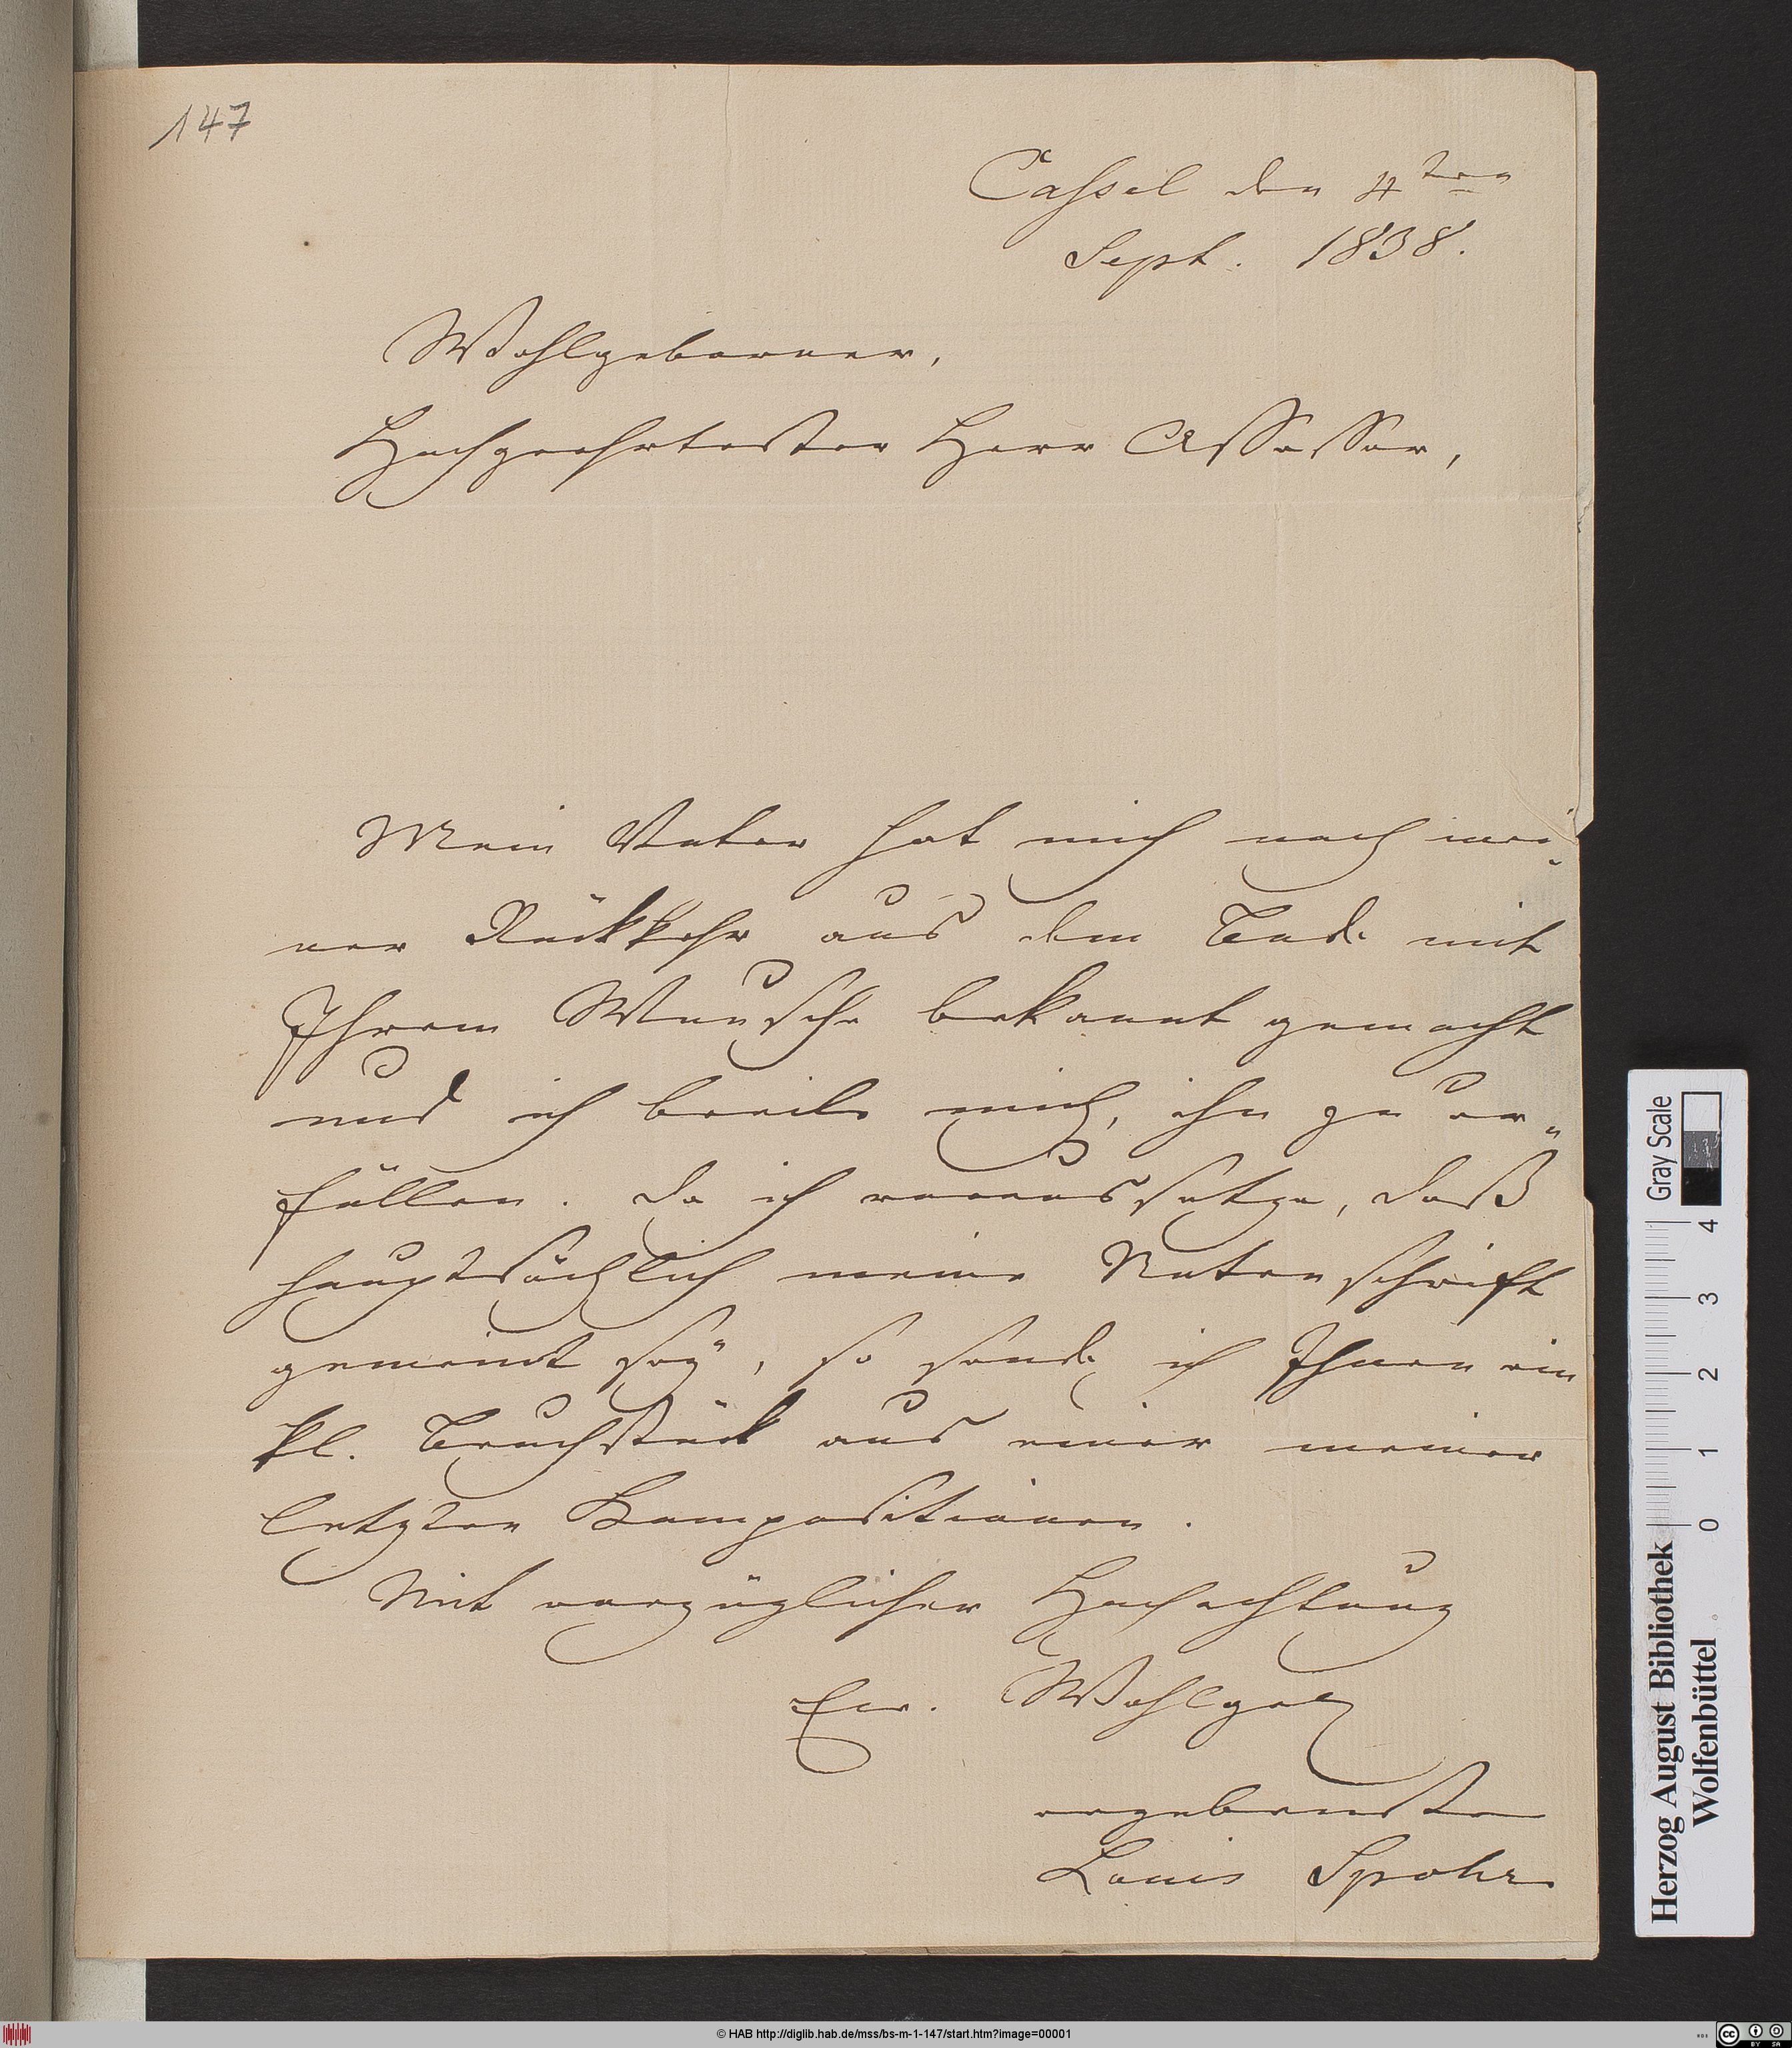 147
Cassel den 4ten
Sept. 1838.
Wohlgeborner,
Hochgeehrtester Herr Assessor,
Mein Vater hat mich nach mei-
ner Rückkehr aus dem Bade mit
Ihrem Wunsche bekannt gemacht
und ich beeile mich, ihn zu er-
füllen. Da ich voraussetze, daß
hauptsächlich meine Notenschrift
gemeint sey, so sende ich Ihnen ein
kl. Bruchstück aus einer meiner
letzten Kompositionen.
Mit vorzüglicher Hochachtung
Ew. Wohlgeb
ergebenster
Louis Spohr.
Gray Scale
4 3 2 1 0
Herzog August Bibliothek
Wolfenbüttel
© HAB http://diglib.hab.de/mss/bs-m-1-147/start.htm?image=00001
cc BY SA